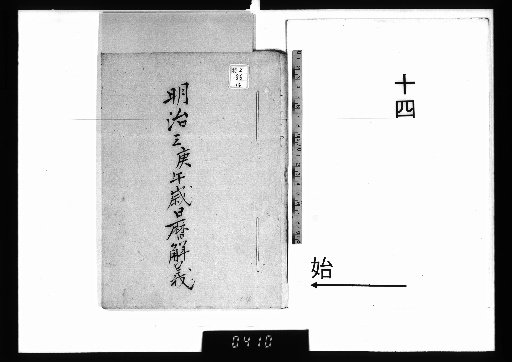 十四
始
明治三庚午歳日暦解義
0410